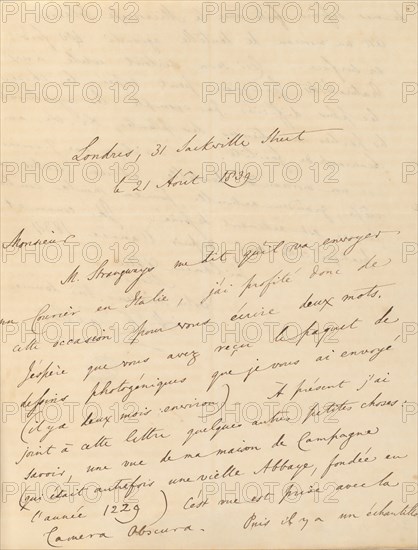 Londres, 31 Sackville Street
le 21 Août 1839
Monsieur
M. Strangways me dit qu'il va envoyer
un Courier en Italie, j'ai profité donc de
cette occasion pour vous écrire deux mots.
J'espère que vous avez reçu le paquet de
dessins photogéniques que je vous ai envoyé
(il y a deux mois environ) A présent j'ai
joint à cette lettre quelques autres petites choses:
savoir, une vue de ma maison de Campagne
(qui était autrefois une vielle Abbaye, fondée en
l'année 1229) C'ést vue est prise avec la
Camera Obscura. Puis il y a un échantillon